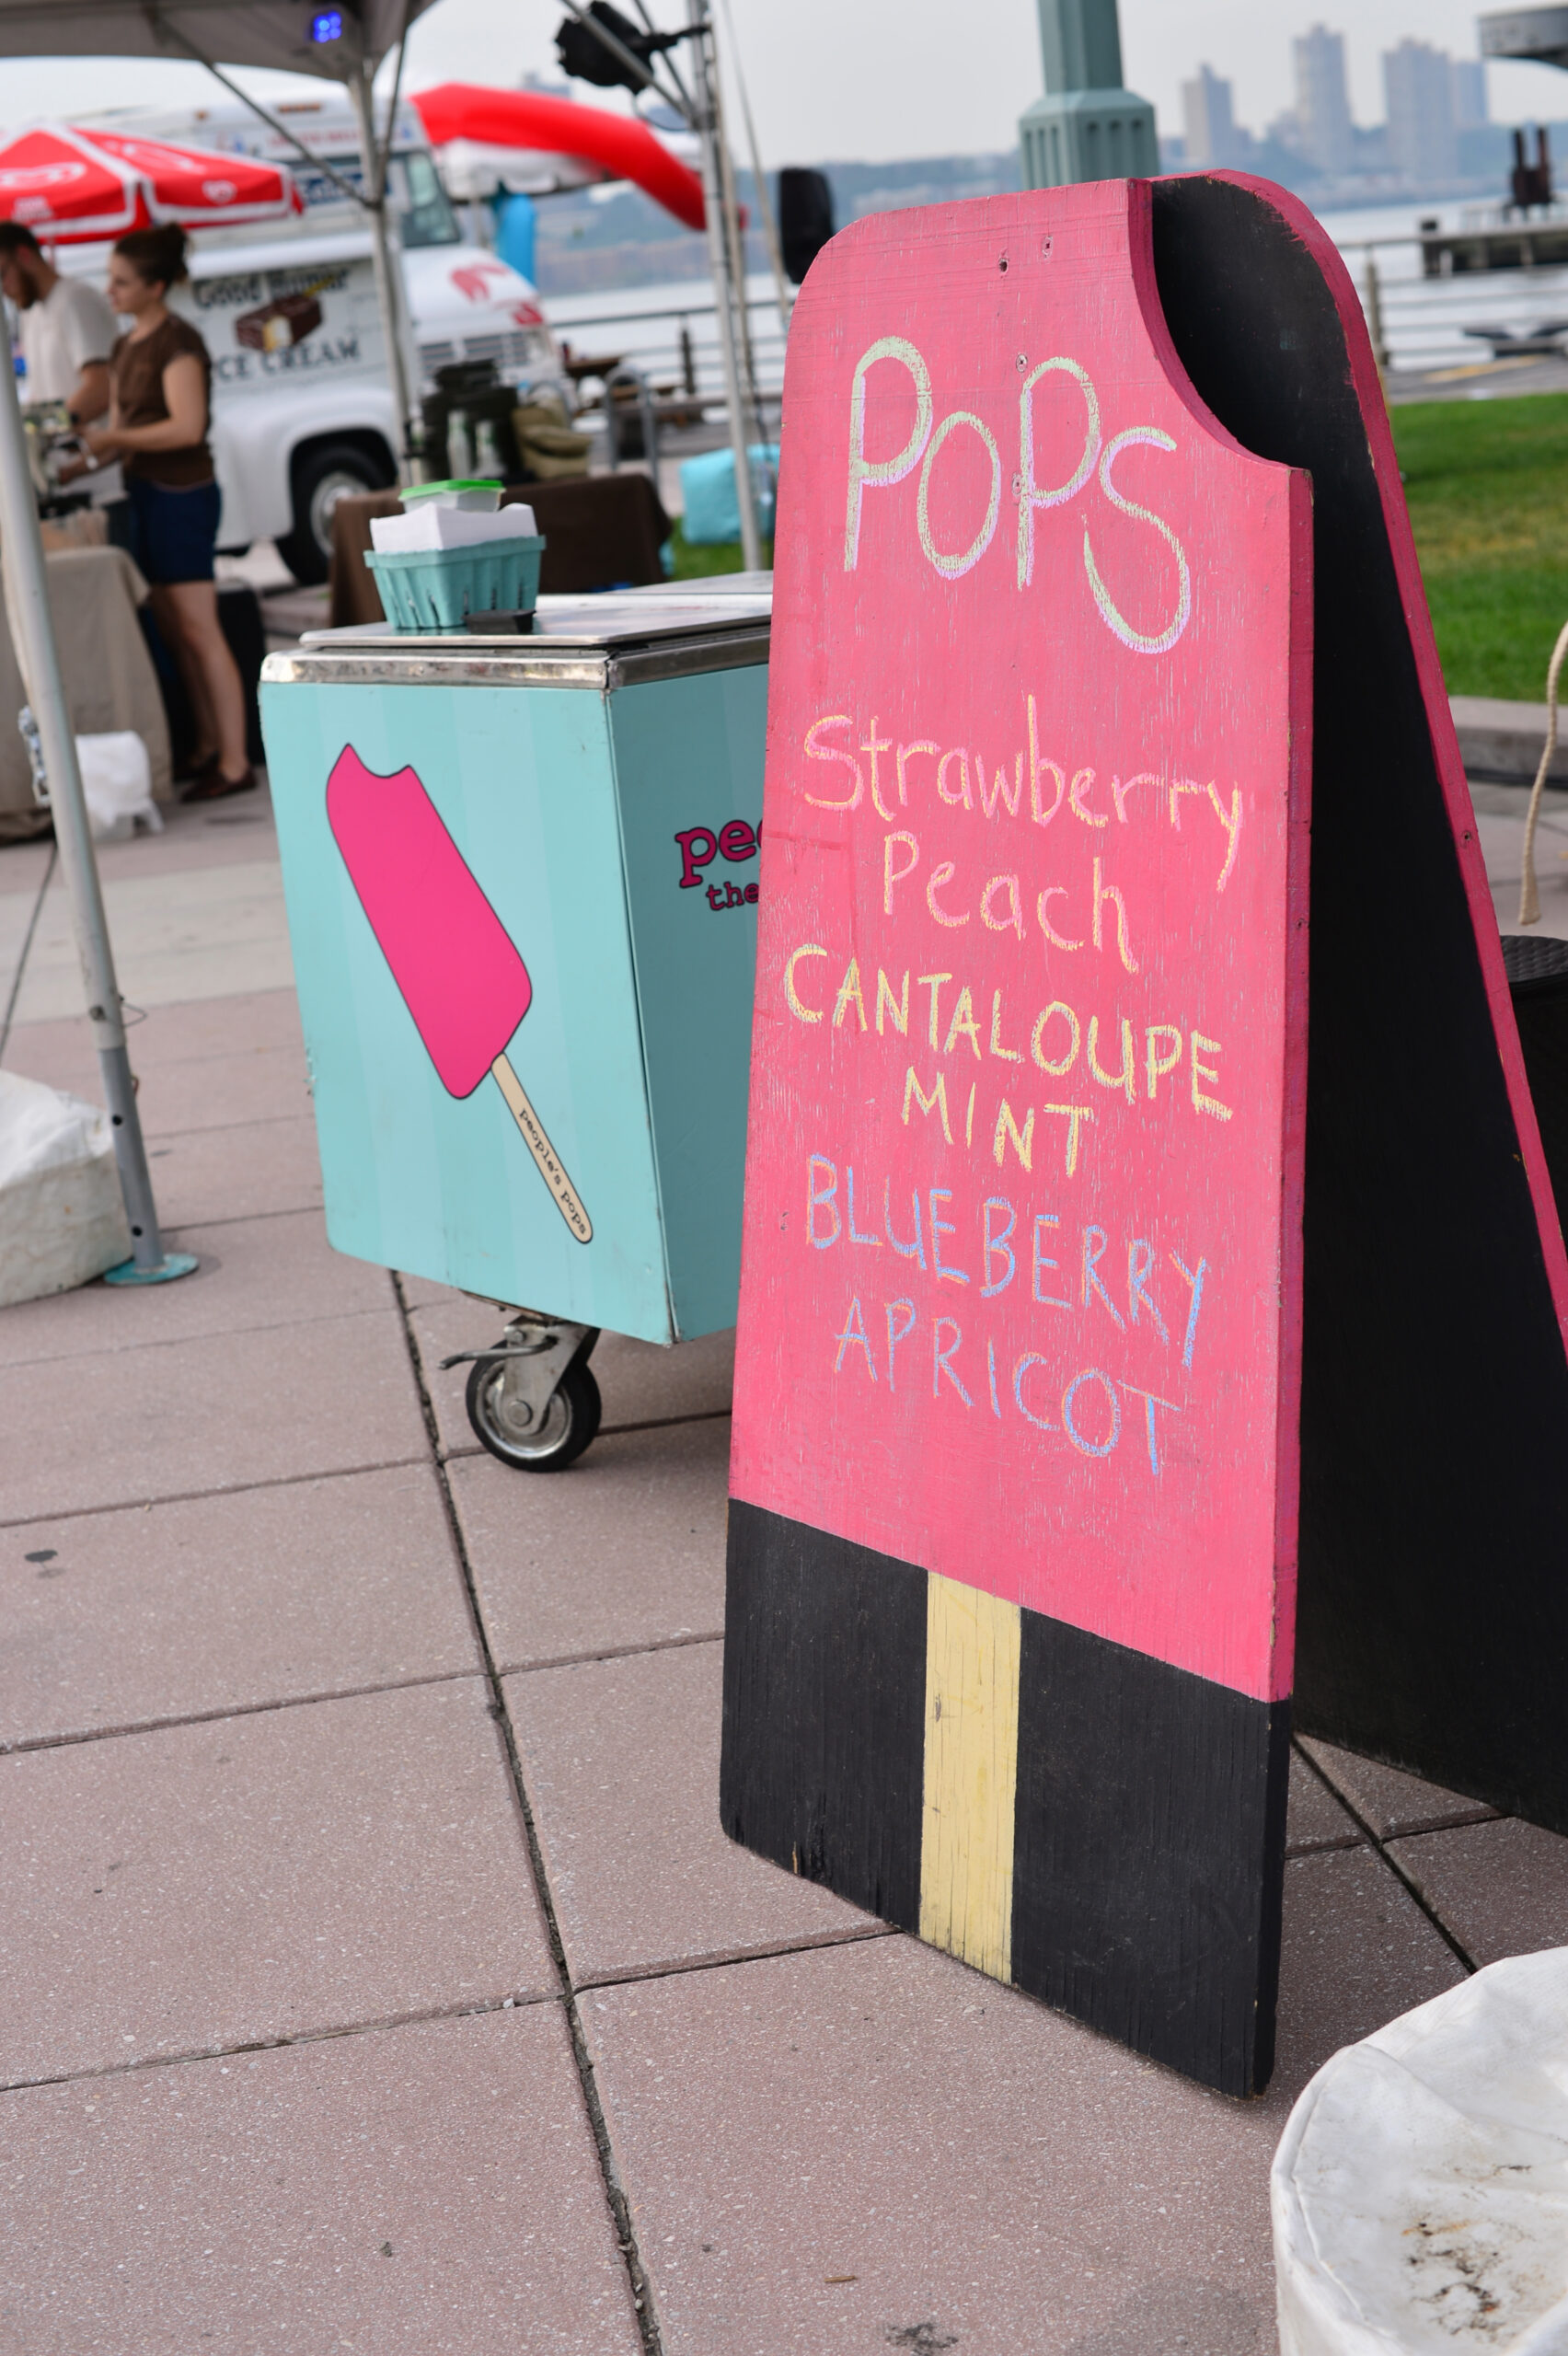 Good Humor
ICE CREAM
people's pops
the
POPS
Strawberry
Peach
CANTALOUPE
MINT
BLUEBERRY
APRICOT